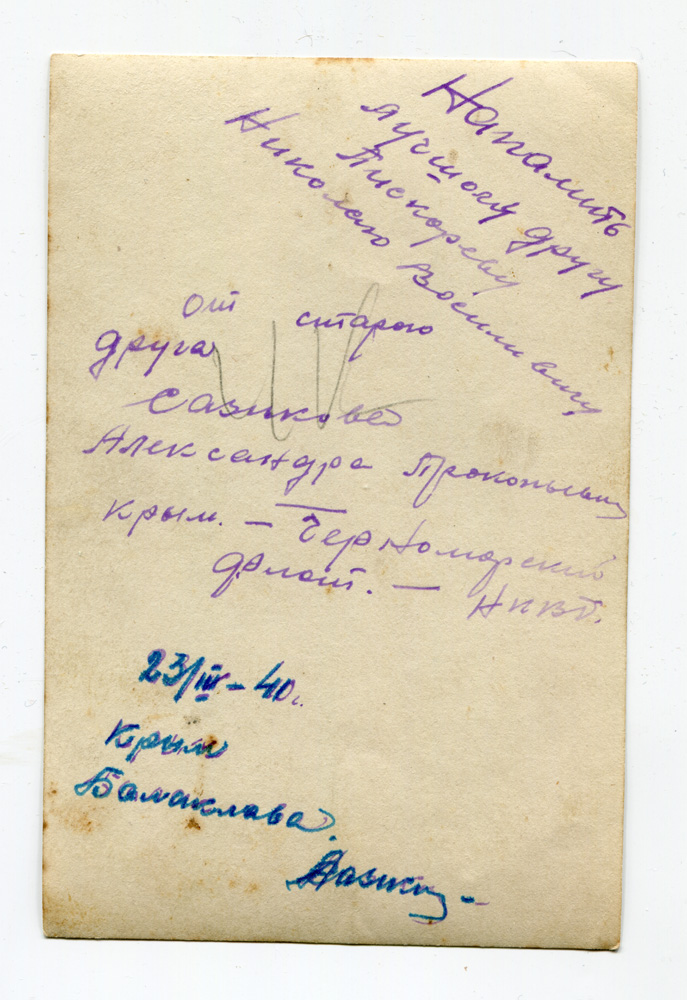 Напамить
лучшому другу
Пискореву
Николаю Восиливичу
от старого
друга
Сазикова
Александра Прокопьевич
Крым. — Черноморский
Флот. — НКВД.
23/III – 40 г.
Крым
Балаклава.